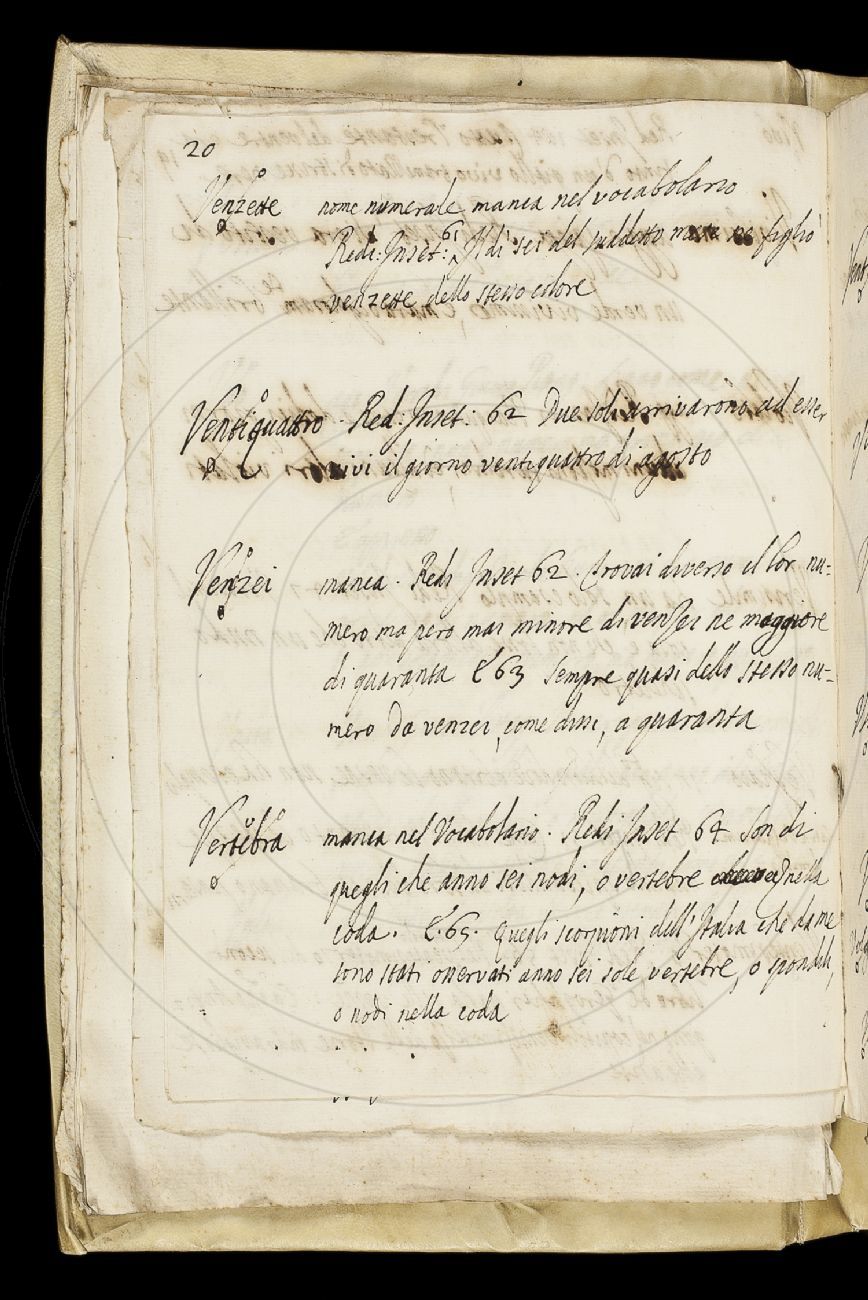 20
Venzette nome numerale manca nel vocabolario
Redi: Inset: 61 Il dì sei del suddetto ne figliò
venzette dello stesso colore
Ventiquattro Red: Inset: 62 Due soli arrivarono ad esser
vivi il giorno ventiquattro di agosto
Venzei manca. Redi Inset 62. trovai diverso il lor nu-
mero ma pero mai minore di venzei ne maggiore
di quaranta E 63 sempre quasi dello stesso nu-
mero da venzei, come dissi, a quaranta
Vertebra manca nel Vocabolario. Redi Inset 64 son di
quegli che anno sei nodi, o vertebre nella
coda. E. 65. quegli scorpioni dell'Italia che da me
sono stati osservati anno sei sole vertebre, o spondili,
o nodi nella coda